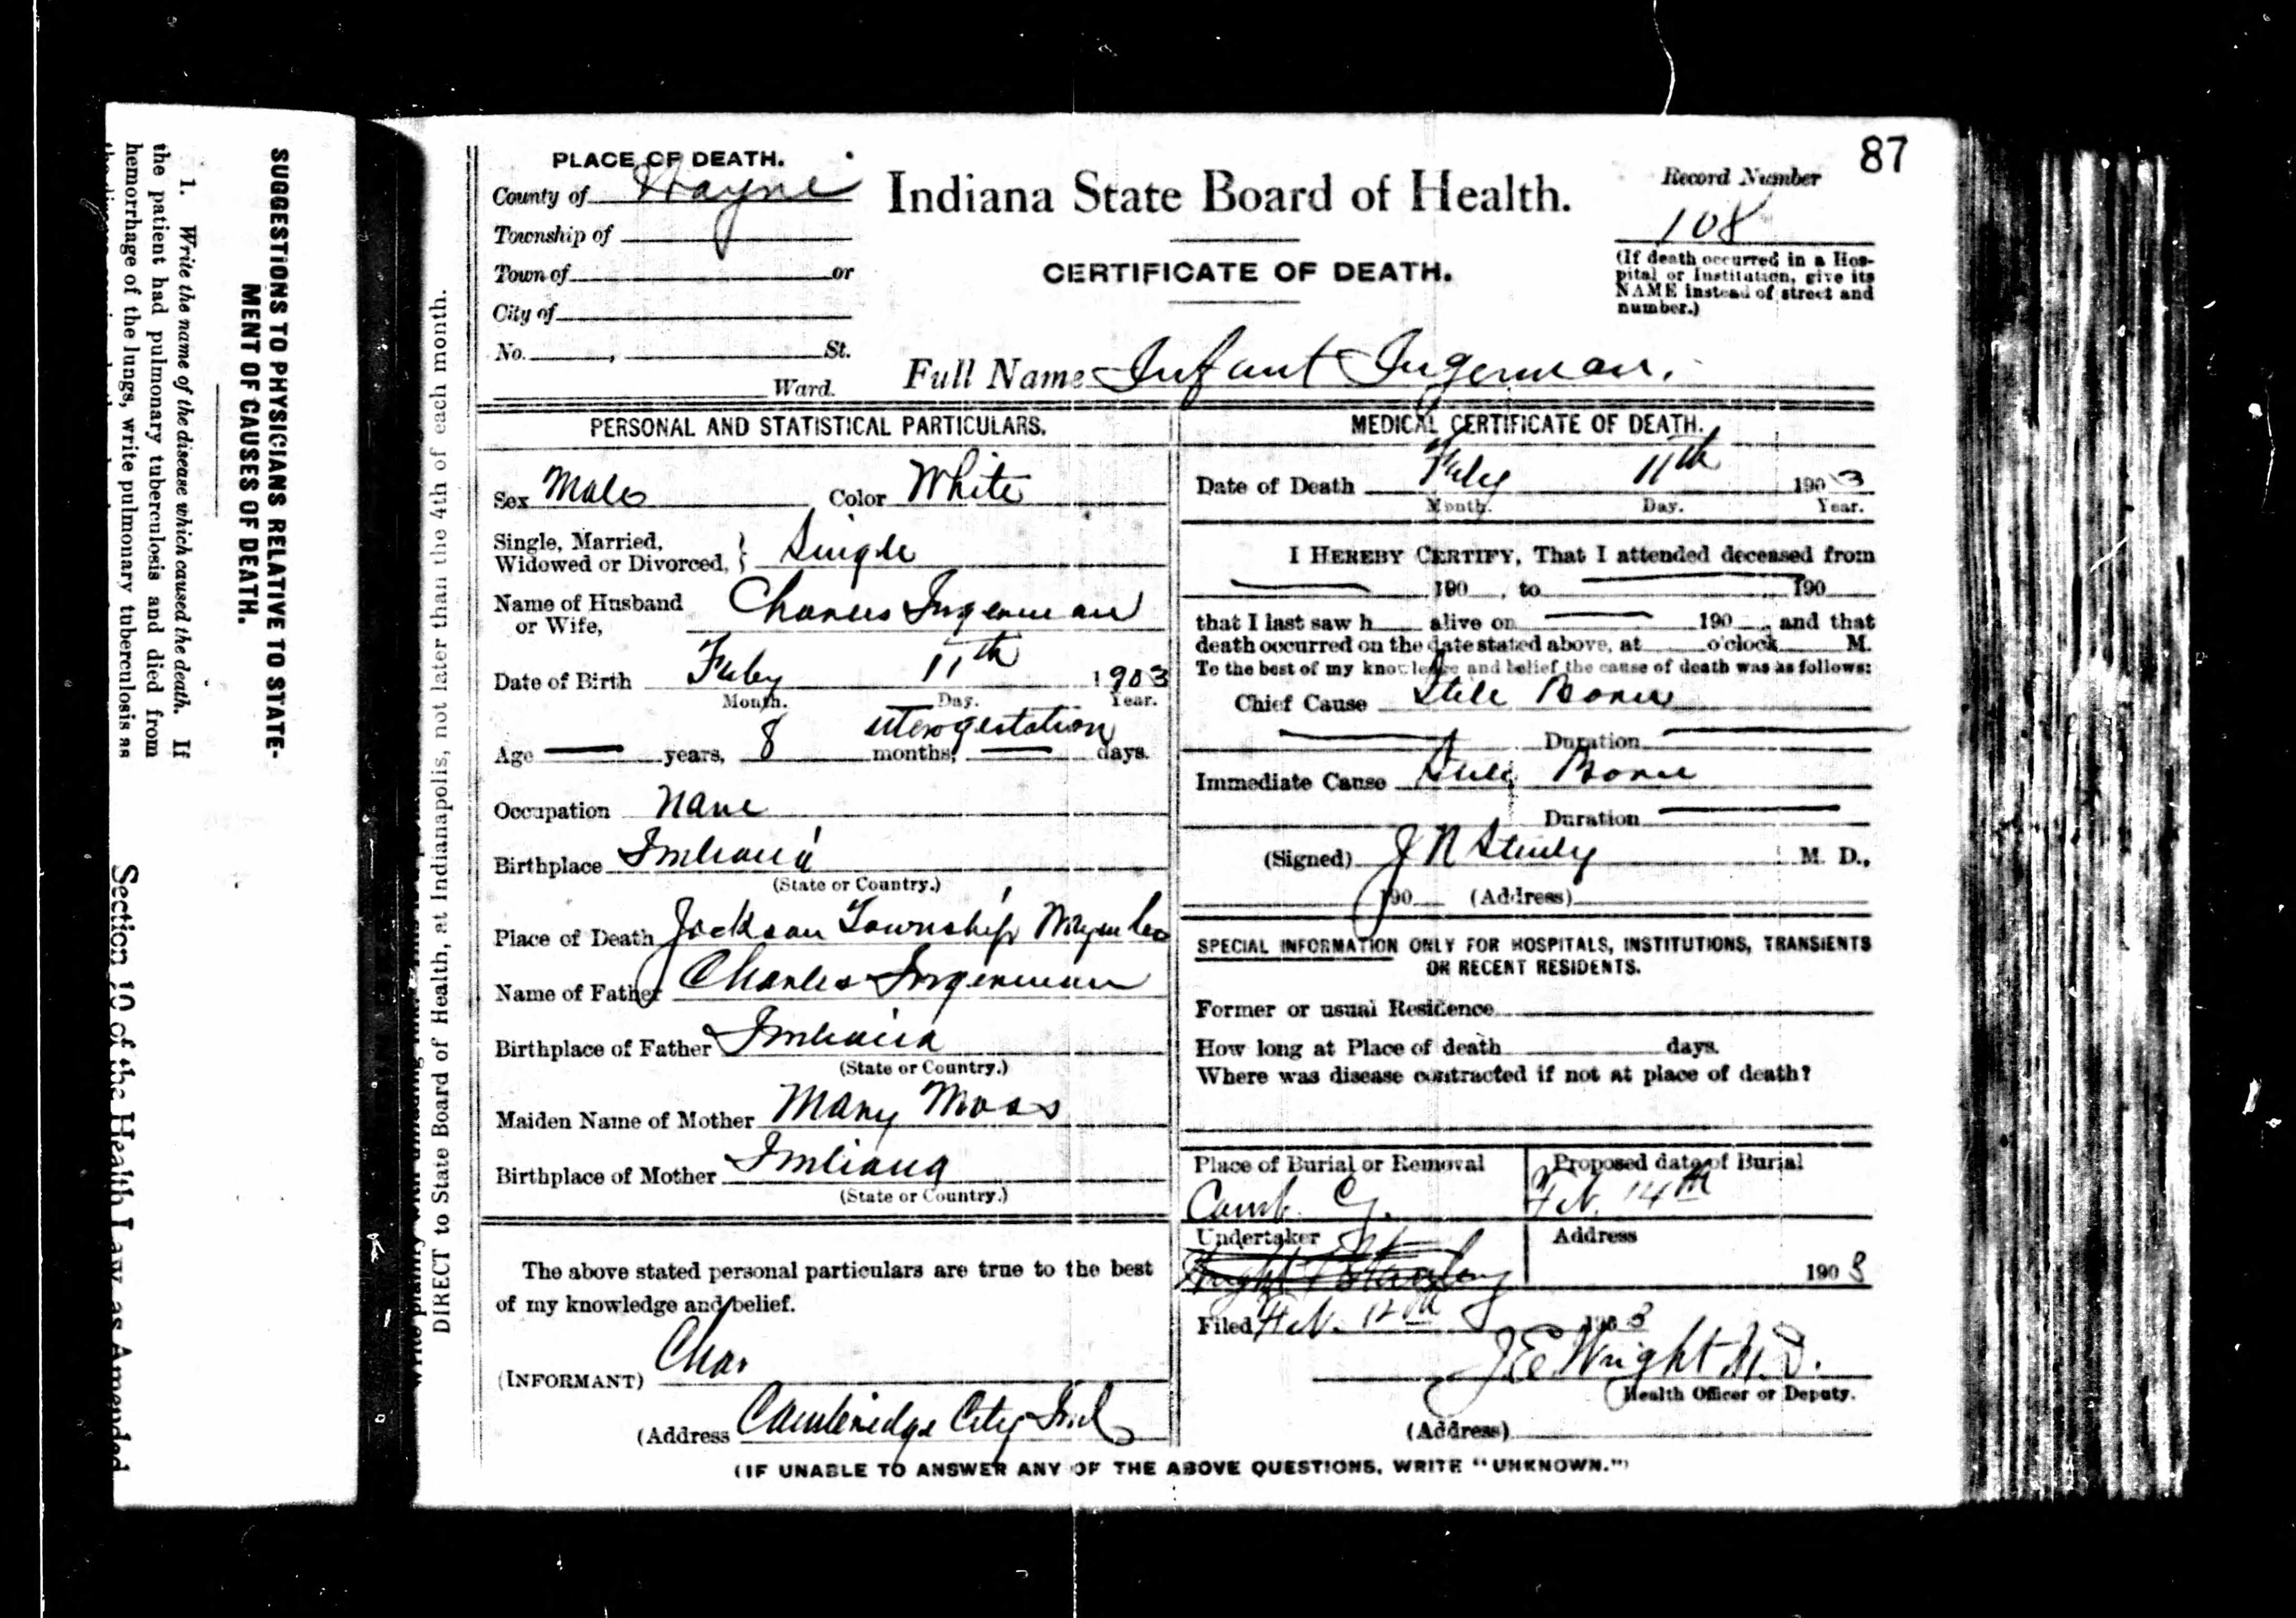 SUGGESTIONS TO PHYSICIANS RELATIVE TO STATE-
MENT OF CAUSES OF DEATH.
1. Write the name of the disease which caused the death. If
the patient had pulmonary tuberculosis and died from
hemorrhage of the lungs, write pulmonary tuberculosis as
Section 10 of the Health Law, as Amended
DIRECT to State Board of Health, at Indianapolis, not later than the 4th of each month.
87
PLACE OF DEATH.
County of Wayne
Township of
Town of or
City of
No. , St.
Ward.
Indiana State Board of Health.
CERTIFICATE OF DEATH.
Record Number
108
(If death occurred in a Hos-
pital or Institution, give its
NAME instead of street and
number.)
Full Name Infant Ingerman.
PERSONAL AND STATISTICAL PARTICULARS.
Sex Male Color White
Single, Married,
Widowed or Divorced, } Single
Name of Husband
or Wife, Charles Ingerman
Date of Birth Feby 11th 1903
Month. Day. Year.
uterogestation
Age years, 8 months, days.
Occupation None
Birthplace Indiana
(State or Country.)
Place of Death Jackson Township Wayne Co
Name of Father Charles Ingerman
Birthplace of Father Indiana
(State or Country.)
Maiden Name of Mother Mary Moss
Birthplace of Mother Indiana
(State or Country.)
The above stated personal particulars are true to the best
of my knowledge and belief.
(INFORMANT) Chas
(Address Cambridge City Ind
MEDICAL CERTIFICATE OF DEATH.
Date of Death Feby 11th 1903
Month. Day. Year.
I HEREBY CERTIFY, That I attended deceased from
190 , to 190
that I last saw h alive on 190 , and that
death occurred on the date stated above, at o'clock M.
To the best of my knowledge and belief the cause of death was as follows:
Chief Cause Still Born
Duration
Immediate Cause Still Born
Duration
(Signed) J N M. D.,
190 (Address)
SPECIAL INFORMATION ONLY FOR HOSPITALS, INSTITUTIONS, TRANSIENTS
OR RECENT RESIDENTS.
Former or usual Residence
How long at Place of death days.
Where was disease contracted if not at place of death?
Place of Burial or Removal
Camb. Cy.
Proposed date of Burial
Feb. 14th
Undertaker
Address
1903
Filed Feb. 12th 1903
J E Wright M.D.
Health Officer or Deputy.
(Address)
(IF UNABLE TO ANSWER ANY OF THE ABOVE QUESTIONS, WRITE "UNKNOWN.")